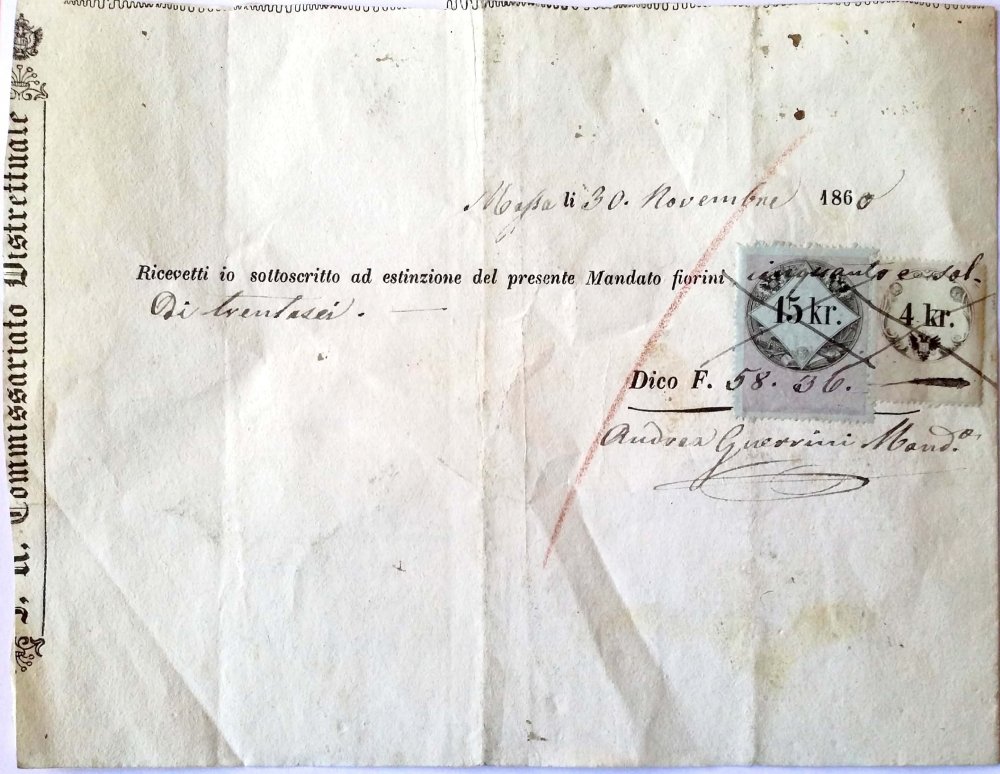 I. R. Commissariato Distrettuale
Massa li 30. Novembre 1860
Ricevetti io sottoscritto ad estinzione del presente Mandato fiorini cinquanto e sol.
Di trentasei.
15 kr.
4 kr.
Dico F. 58. 36.
Andrea Guerrini Mand.°